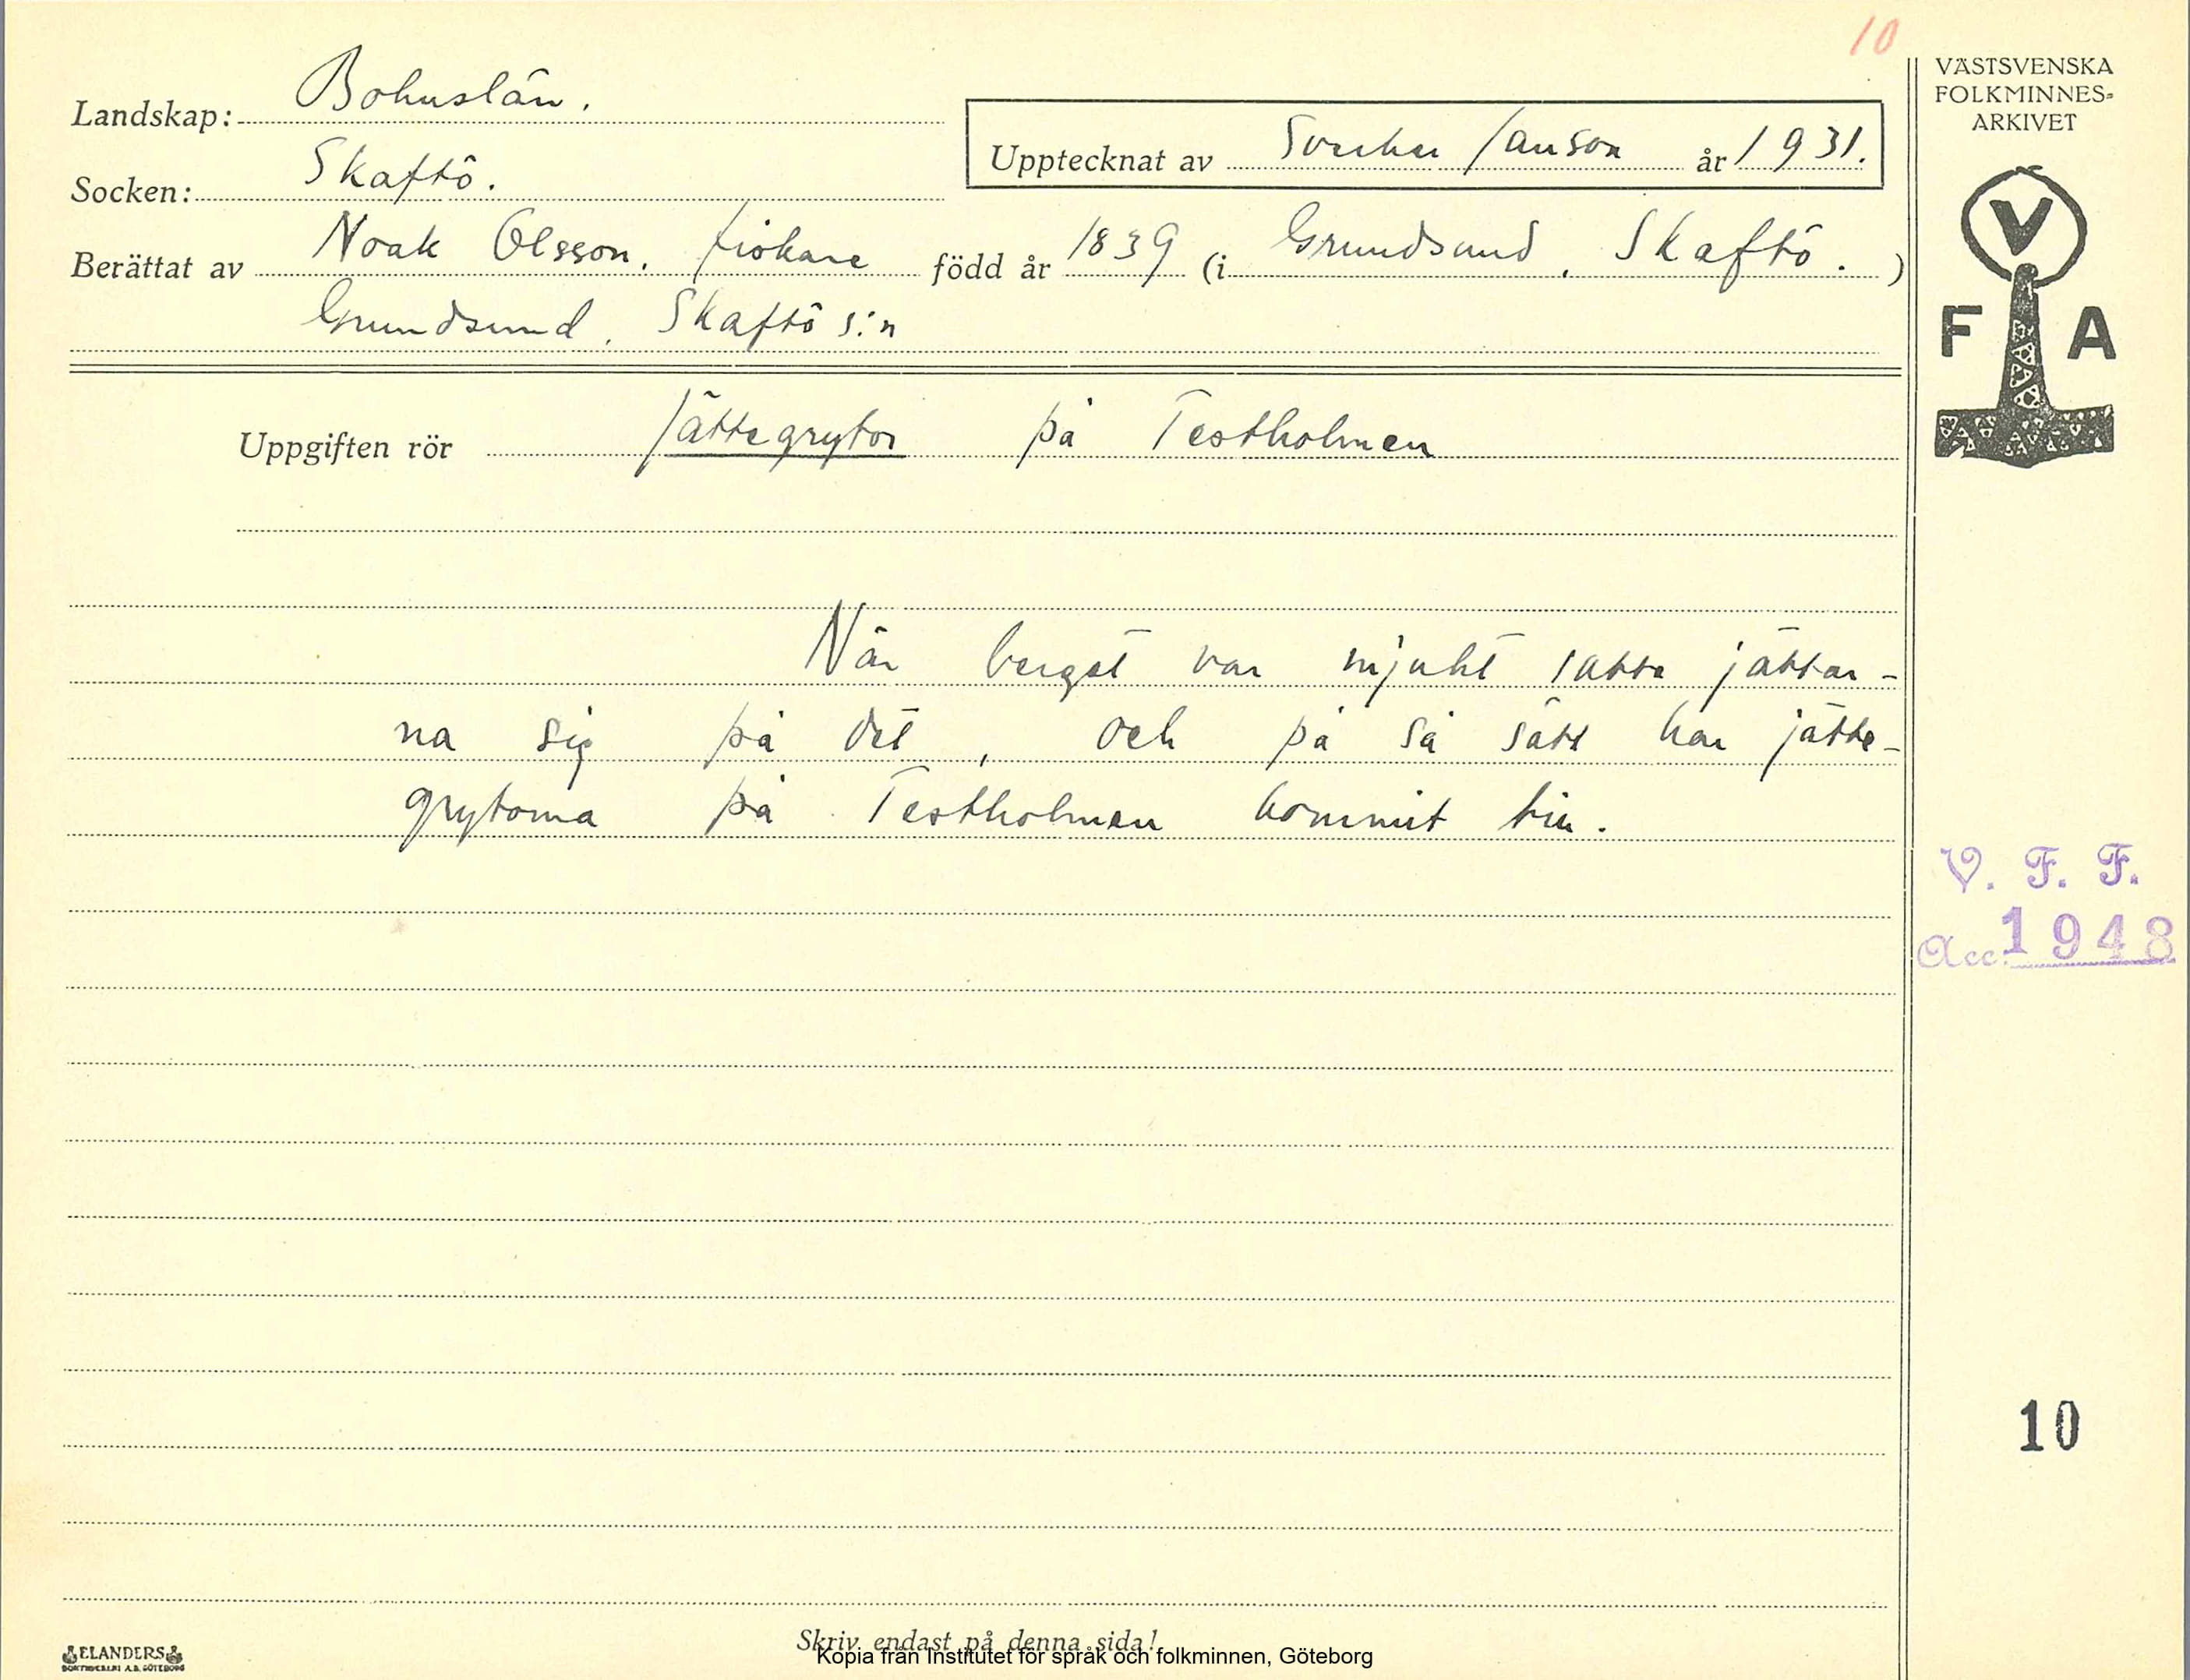 10
VÄSTSVENSKA
FOLKMINNES-
ARKIVET
Landskap: Bohuslän.
Upptecknat av Sverker Janson år 1931.
Socken: Skaftö.
Berättat av Noak Olsson, fiskare född år 1839 (i Grundsund, Skaftö. )
Grundsund, Skaftö s:n
V
F A
Uppgiften rör Jättegrytor på Testholmen
När berget var mjukt satte jättar-
na sig på det, och på så sätt har jätte-
grytorna på Testholmen kommit till.
V. F. F.
Acc. 1948
10
Skriv endast på denna sida!
Kopia från Institutet för språk och folkminnen, Göteborg
ELANDERS
BOKTRYCKERI A.B. GÖTEBORG